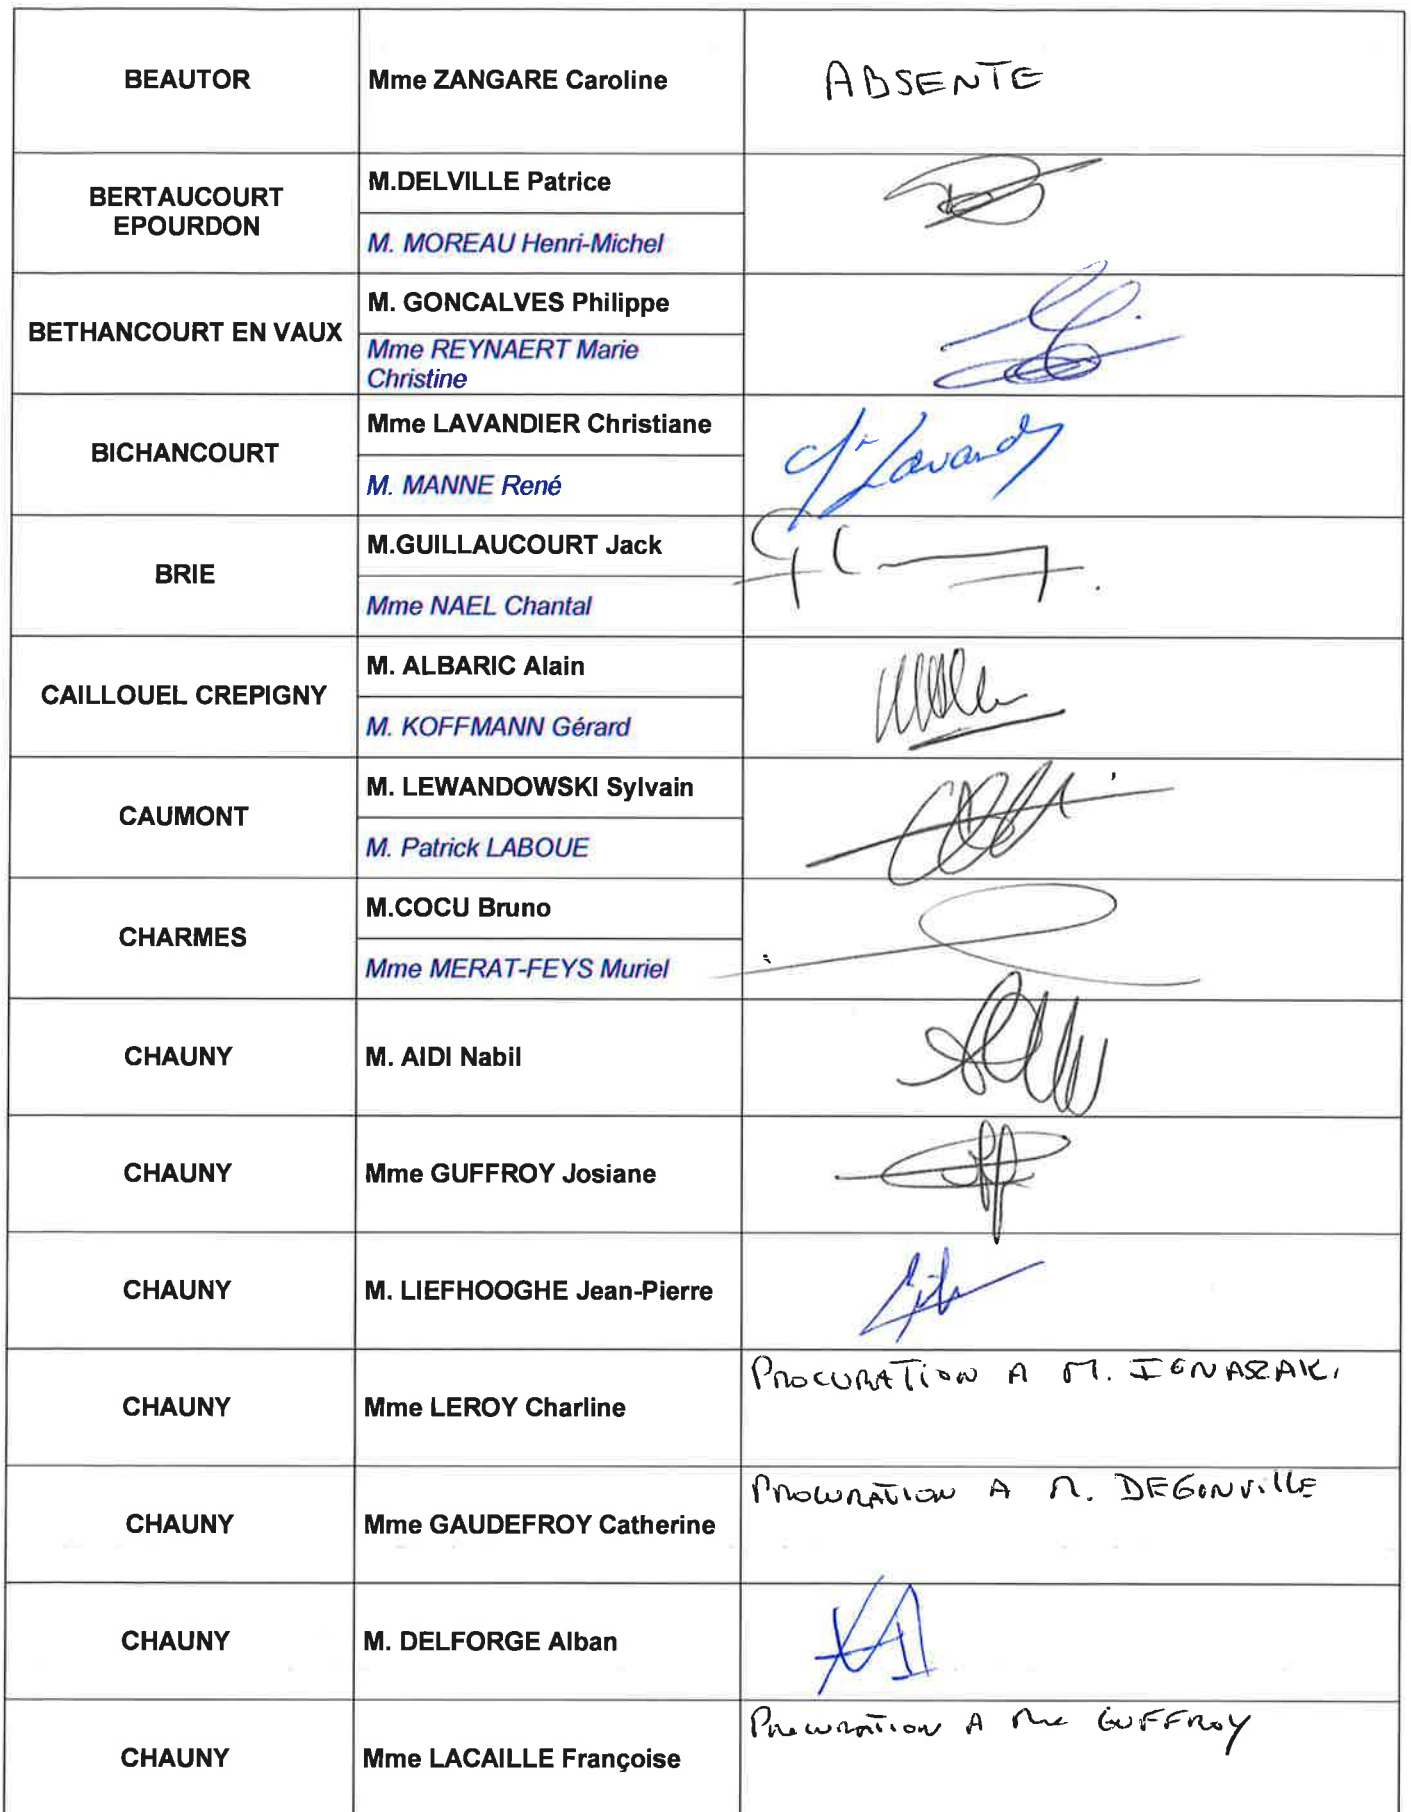 BEAUTOR
Mme ZANGARE Caroline
ABSENTE
BERTAUCOURT
EPOURDON
M.DELVILLE Patrice
M. MOREAU Henri-Michel
BETHANCOURT EN VAUX
M. GONCALVES Philippe
Mme REYNAERT Marie
Christine
BICHANCOURT
Mme LAVANDIER Christiane
M. MANNE René
BRIE
M.GUILLAUCOURT Jack
Mme NAEL Chantal
CAILLOUEL CREPIGNY
M. ALBARIC Alain
M. KOFFMANN Gérard
CAUMONT
M. LEWANDOWSKI Sylvain
M. Patrick LABOUE
CHARMES
M.COCU Bruno
Mme MERAT-FEYS Muriel
CHAUNY
M. AIDI Nabil
CHAUNY
Mme GUFFROY Josiane
CHAUNY
M. LIEFHOOGHE Jean-Pierre
CHAUNY
Mme LEROY Charline
PROCURATION A M. IGNASZAK
CHAUNY
Mme GAUDEFROY Catherine
PROCURATION A M. DEGONVILLE
CHAUNY
M. DELFORGE Alban
CHAUNY
Mme LACAILLE Françoise
PROCURATION A Mme GUFFROY